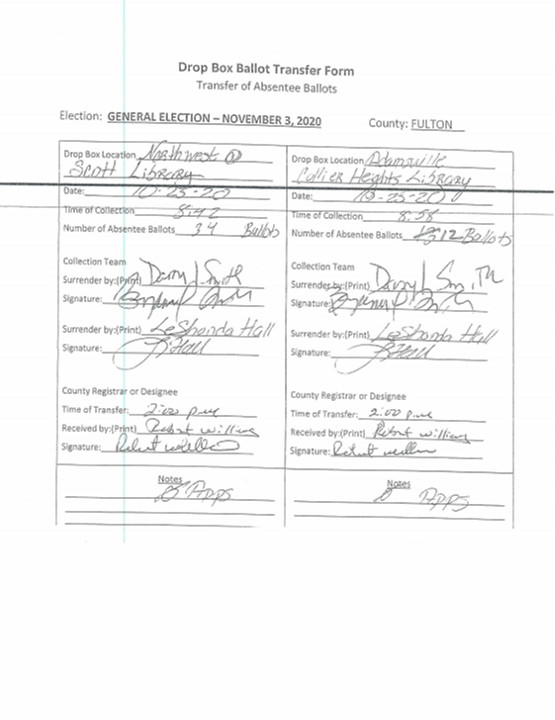 Drop Box Ballot Transfer Form
Transfer of Absentee Ballots
Election: GENERAL ELECTION – NOVEMBER 3, 2020 County: FULTON
Drop Box Location Northwest @
Scott Library
Date: 10-25-20
Time of Collection 8:42
Number of Absentee Ballots 34 Ballots
Collection Team
Surrender by:(Print) Darryl Smith
Signature:
Surrender by:(Print) LeShonda Hall
Signature: Hall
County Registrar or Designee
Time of Transfer: 2:00 p.m
Received by:(Print) Robert Williams
Signature:
Notes
Apps
Drop Box Location Adamsville
Collier Heights Library
Date: 10-25-20
Time of Collection 8:58
Number of Absentee Ballots 12 Ballots
Collection Team
Surrender by:(Print) Darryl Smith
Signature:
Surrender by:(Print) LeShonda Hall
Signature: Hall
County Registrar or Designee
Time of Transfer: 2:00 p.m
Received by:(Print) Robert Williams
Signature:
Notes
Apps